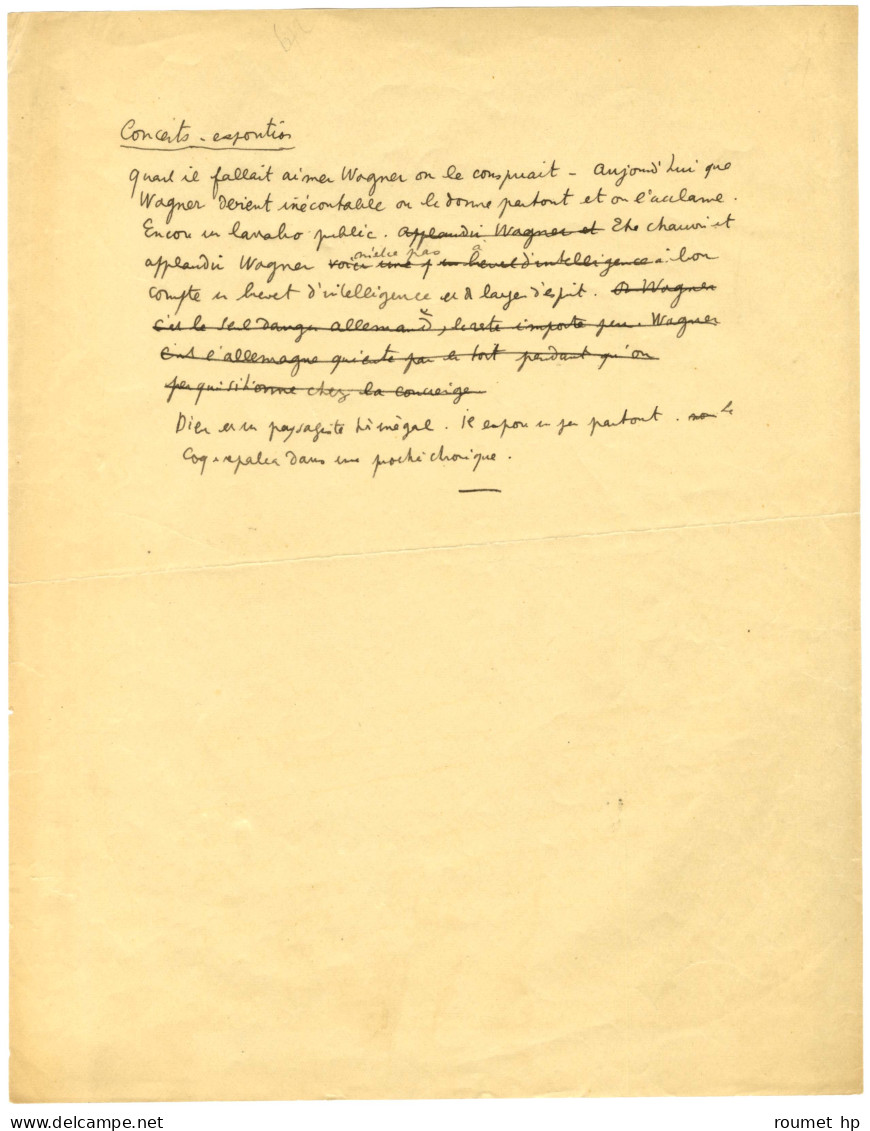 Concerts - exposition
Quand il fallait aimer Wagner on le conspuait - Aujourd'hui que
Wagner devient inécoutable on le donne partout et on l'acclame.
Encore un lavabo public. applaudir Wagner et Etre chauvin et
applaudir Wagner voici une n'est-ce pas un brevet d'intelligence à bon
compte un brevet d'intelligence et de larges d'esprit. Wagner
c'est le seul danger allemand, le reste importe peu. Wagner
c'est l'allemagne qui entre par le toit pendant qu'on
perquisitionne chez la concierge
Dieu est un paysagiste très inégal. il expose un peu partout. non le
Coq en parlera dans une prochaine chronique.
roumet hp